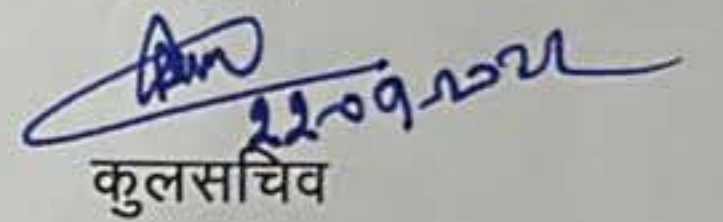 22-09-2022
कुलसचिव